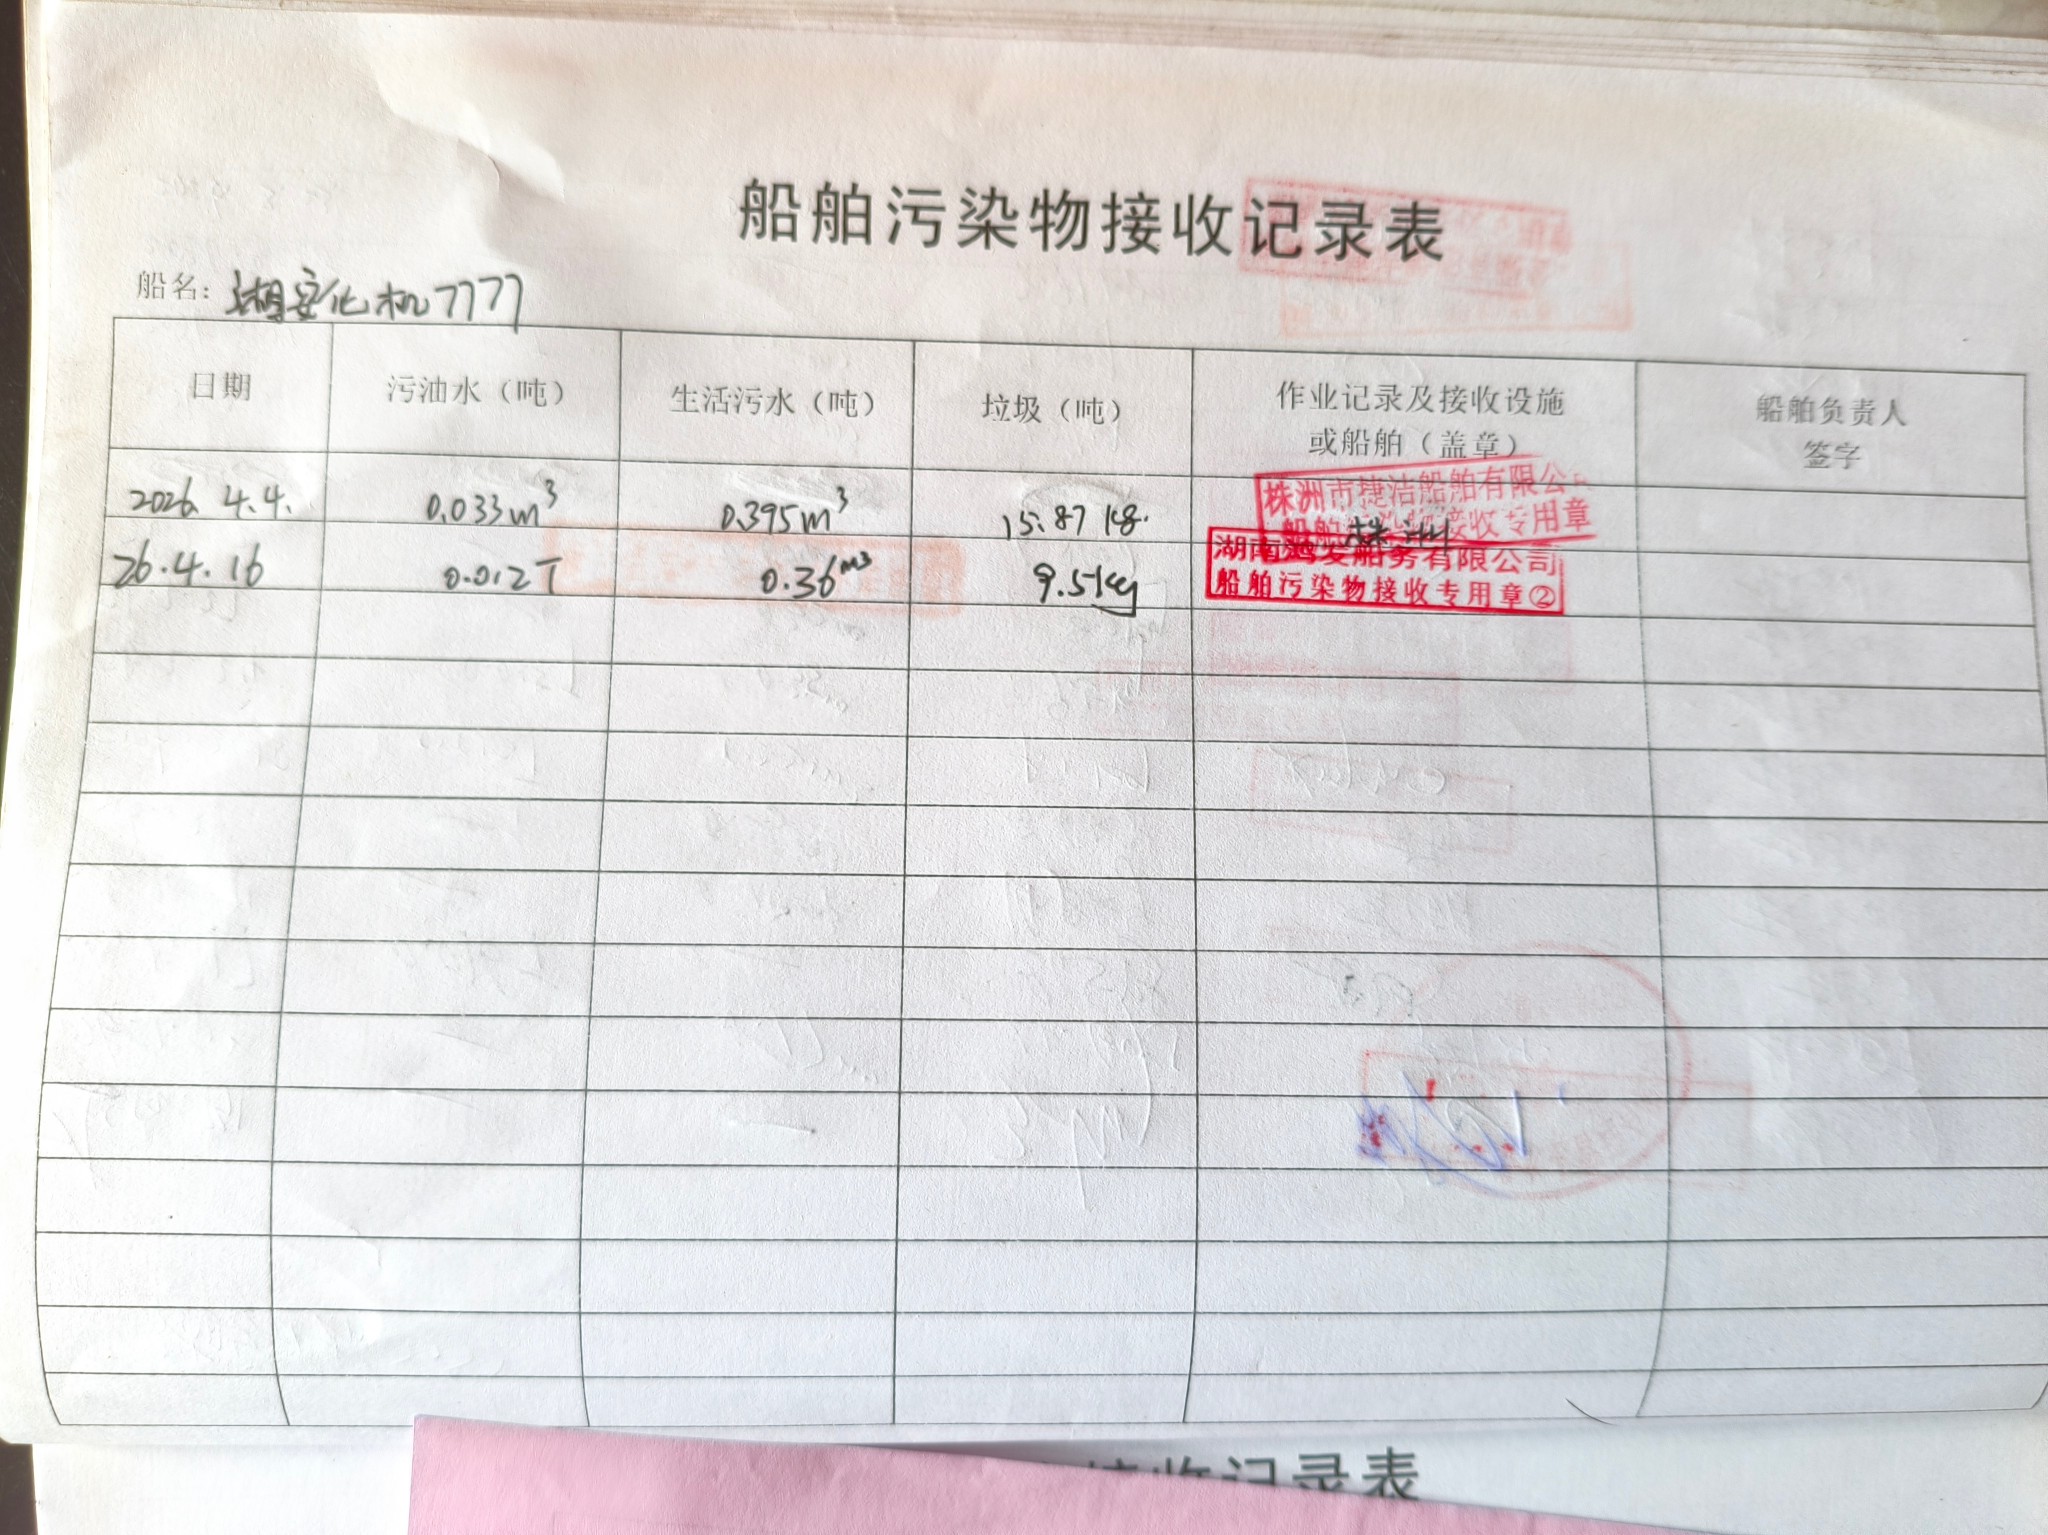 船舶污染物接收记录表
船名：湖安化机7777
日期 污油水（吨） 生活污水（吨） 垃圾（吨） 作业记录及接收设施 或船舶（盖章） 船舶负责人 签字
2026. 4.4. 0.033m³ 0.395m³ 15.87 kg. 株洲
株洲市捷洁船舶有限公
船舶污染物接收专用章
26.4.16 0.012T 0.36m³ 9.5kg
湖南鸿发船务有限公司
船舶污染物接收专用章②
接收记录表